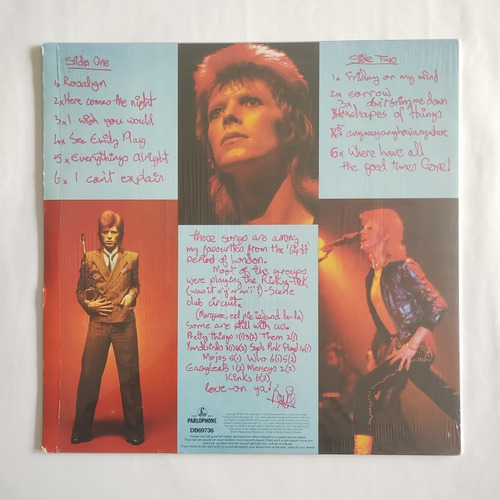 Side One
1x Rosalyn
2x Here comes the night
3x I wish you would
4x See Emily Play
5x Everythings alright
6x I can't explain
Side Two
1x Friday on my mind
2x sorrow
3x don't bring me down
shapes of things
anyway anyhow anywhere
6x Where have all
the good times Gone!
These songs are among
my favourites from the '64-67
period of London.
Most of the groups
were playing the Ricky-Tick
(was it a 'y' or an 'i'?)-Scene
club circuit.
(Marquee, eel pie island la-la)
Some are still with us.
Pretty things 1(1)3(2) Them 2(1)
Yardbirds 3(1)4(2) Syds Pink Floyd 4(1)
Mojos 5(1) Who 6(1)5(2)
Easybeats 1(2) Merseys 2(2)
Kinks 6(2)
love-on ya!
PARLOPHONE
DB69736